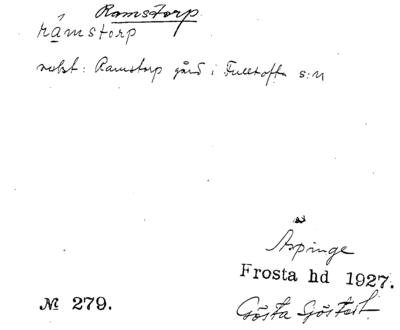 Ramstorp
råmstorp
rekt: Ramstorp gård i Fulltofta s:n
Äspinge
Frosta hd 1927.
№ 279.
Gösta Sjöstedt.